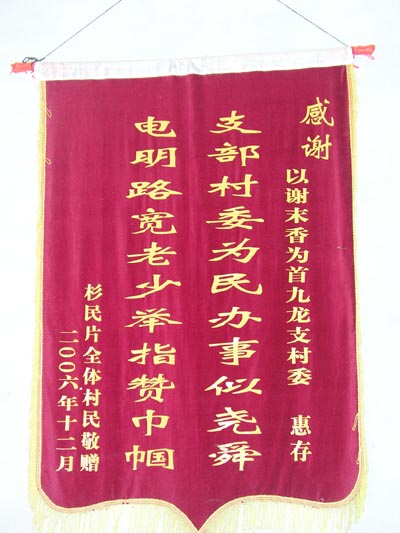 感谢
以谢末香为首九龙支村委 惠存
支部村委为民办事似尧舜
电明路宽老少举指赞巾帼
杉民片全体村民敬赠
二〇〇六年十二月